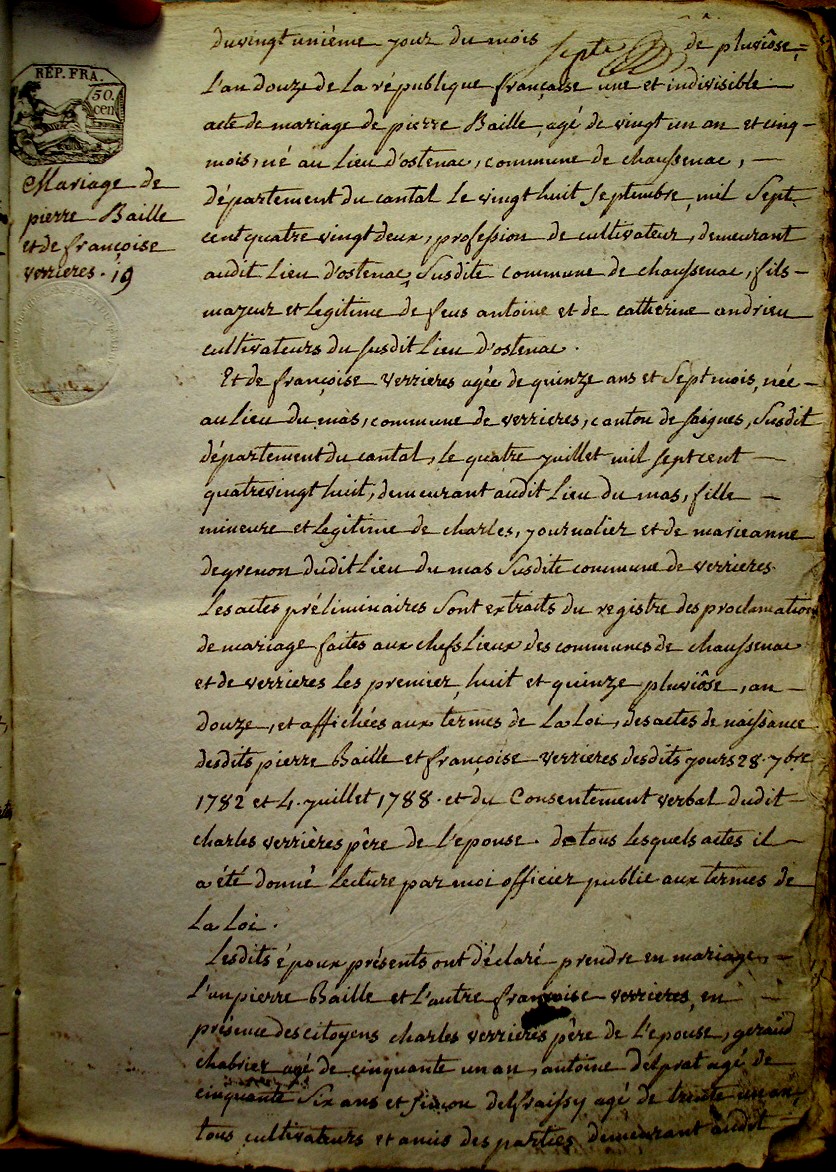 REP. FRA.
50.
cen
Mariage de
pierre Baille
et de françoise
verrieres. 19
du vingt unième jour du mois de pluviôse
L'an douze de La république française une et indivisible
acte de mariage de pierre Baille, agé de vingt un an et cinq
mois, né au Lieu d'ostenac, commune de chaussenac,
département du cantal Le vingt huit Septembre, mil Sept
cent quatre vingt deux, profession de cultivateur, demeurant
audit Lieu d'ostenac, Susdite commune de chaussenac, fils
majeur et Legitime de feus antoine et de catherine andrieu
cultivateurs du susdit Lieu d'ostenac.
Et de françoise verrieres agée de quinze ans et Sept mois, née
au Lieu du mas, commune de verrieres, canton de saignes, Susdit
département du cantal, le quatre juillet mil sept cent
quatre vingt huit, demeurant audit Lieu du mas, fille
mineure et Legitime de charles, journalier et de marieanne
degrenon dudit Lieu du mas Susdite commune de verrieres.
Les actes préliminaires Sont extraits du registre des proclamations
de mariage faites aux chefs Lieux des communes de chaussenac
et de verrieres Les premier, huit et quinze pluviôse, an
douze, et affichées aux termes de La Loi, des actes de naissance
desdits pierre Baille et françoise verrieres desdits jours 28. 7bre
1782 et 4. juillet 1788. et du Consentement verbal dudit
charles verrières père de L'epouse. de tous Lesquels actes il
a été donné Lecture par moi officier public aux termes de
La Loi.
Lesdits époux présents ont déclaré prendre en mariage,
L'un pierre Baille et L'autre françoise verrieres, en
présence des citoyens charles verrieres père de L'epouse, geraud
chabrier agé de cinquante un an, antoine delprat agé de
cinquante Six ans et simon delfraissy agé de trente un an,
tous cultivateurs et amis des parties demeurant audit